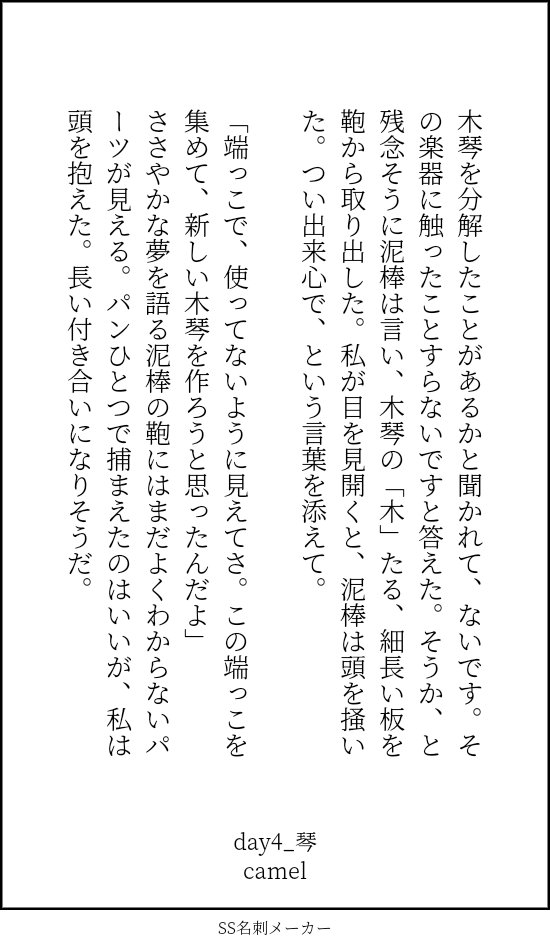 木琴を分解したことがあるかと聞かれて、ないです。そ
の楽器に触ったことすらないですと答えた。そうか、と
残念そうに泥棒は言い、木琴の「木」たる、細長い板を
鞄から取り出した。私が目を見開くと、泥棒は頭を掻い
た。つい出来心で、という言葉を添えて。
「端っこで、使ってないように見えてさ。この端っこを
集めて、新しい木琴を作ろうと思ったんだよ」
ささやかな夢を語る泥棒の鞄にはまだよくわからないパ
ーツが見える。パンひとつで捕まえたのはいいが、私は
頭を抱えた。長い付き合いになりそうだ。
day4_琴
camel
SS名刺メーカー